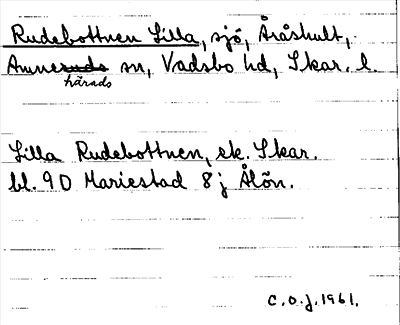 Rudebottnen Lilla, sjö, Åråshult,
Amneruds sn, Vadsbo hd, Skar. l.
härads
Lilla Rudebottnen, ek. Skar.
bl. 9 D Mariestad 8 j Ålön.
C.O.J. 1961.